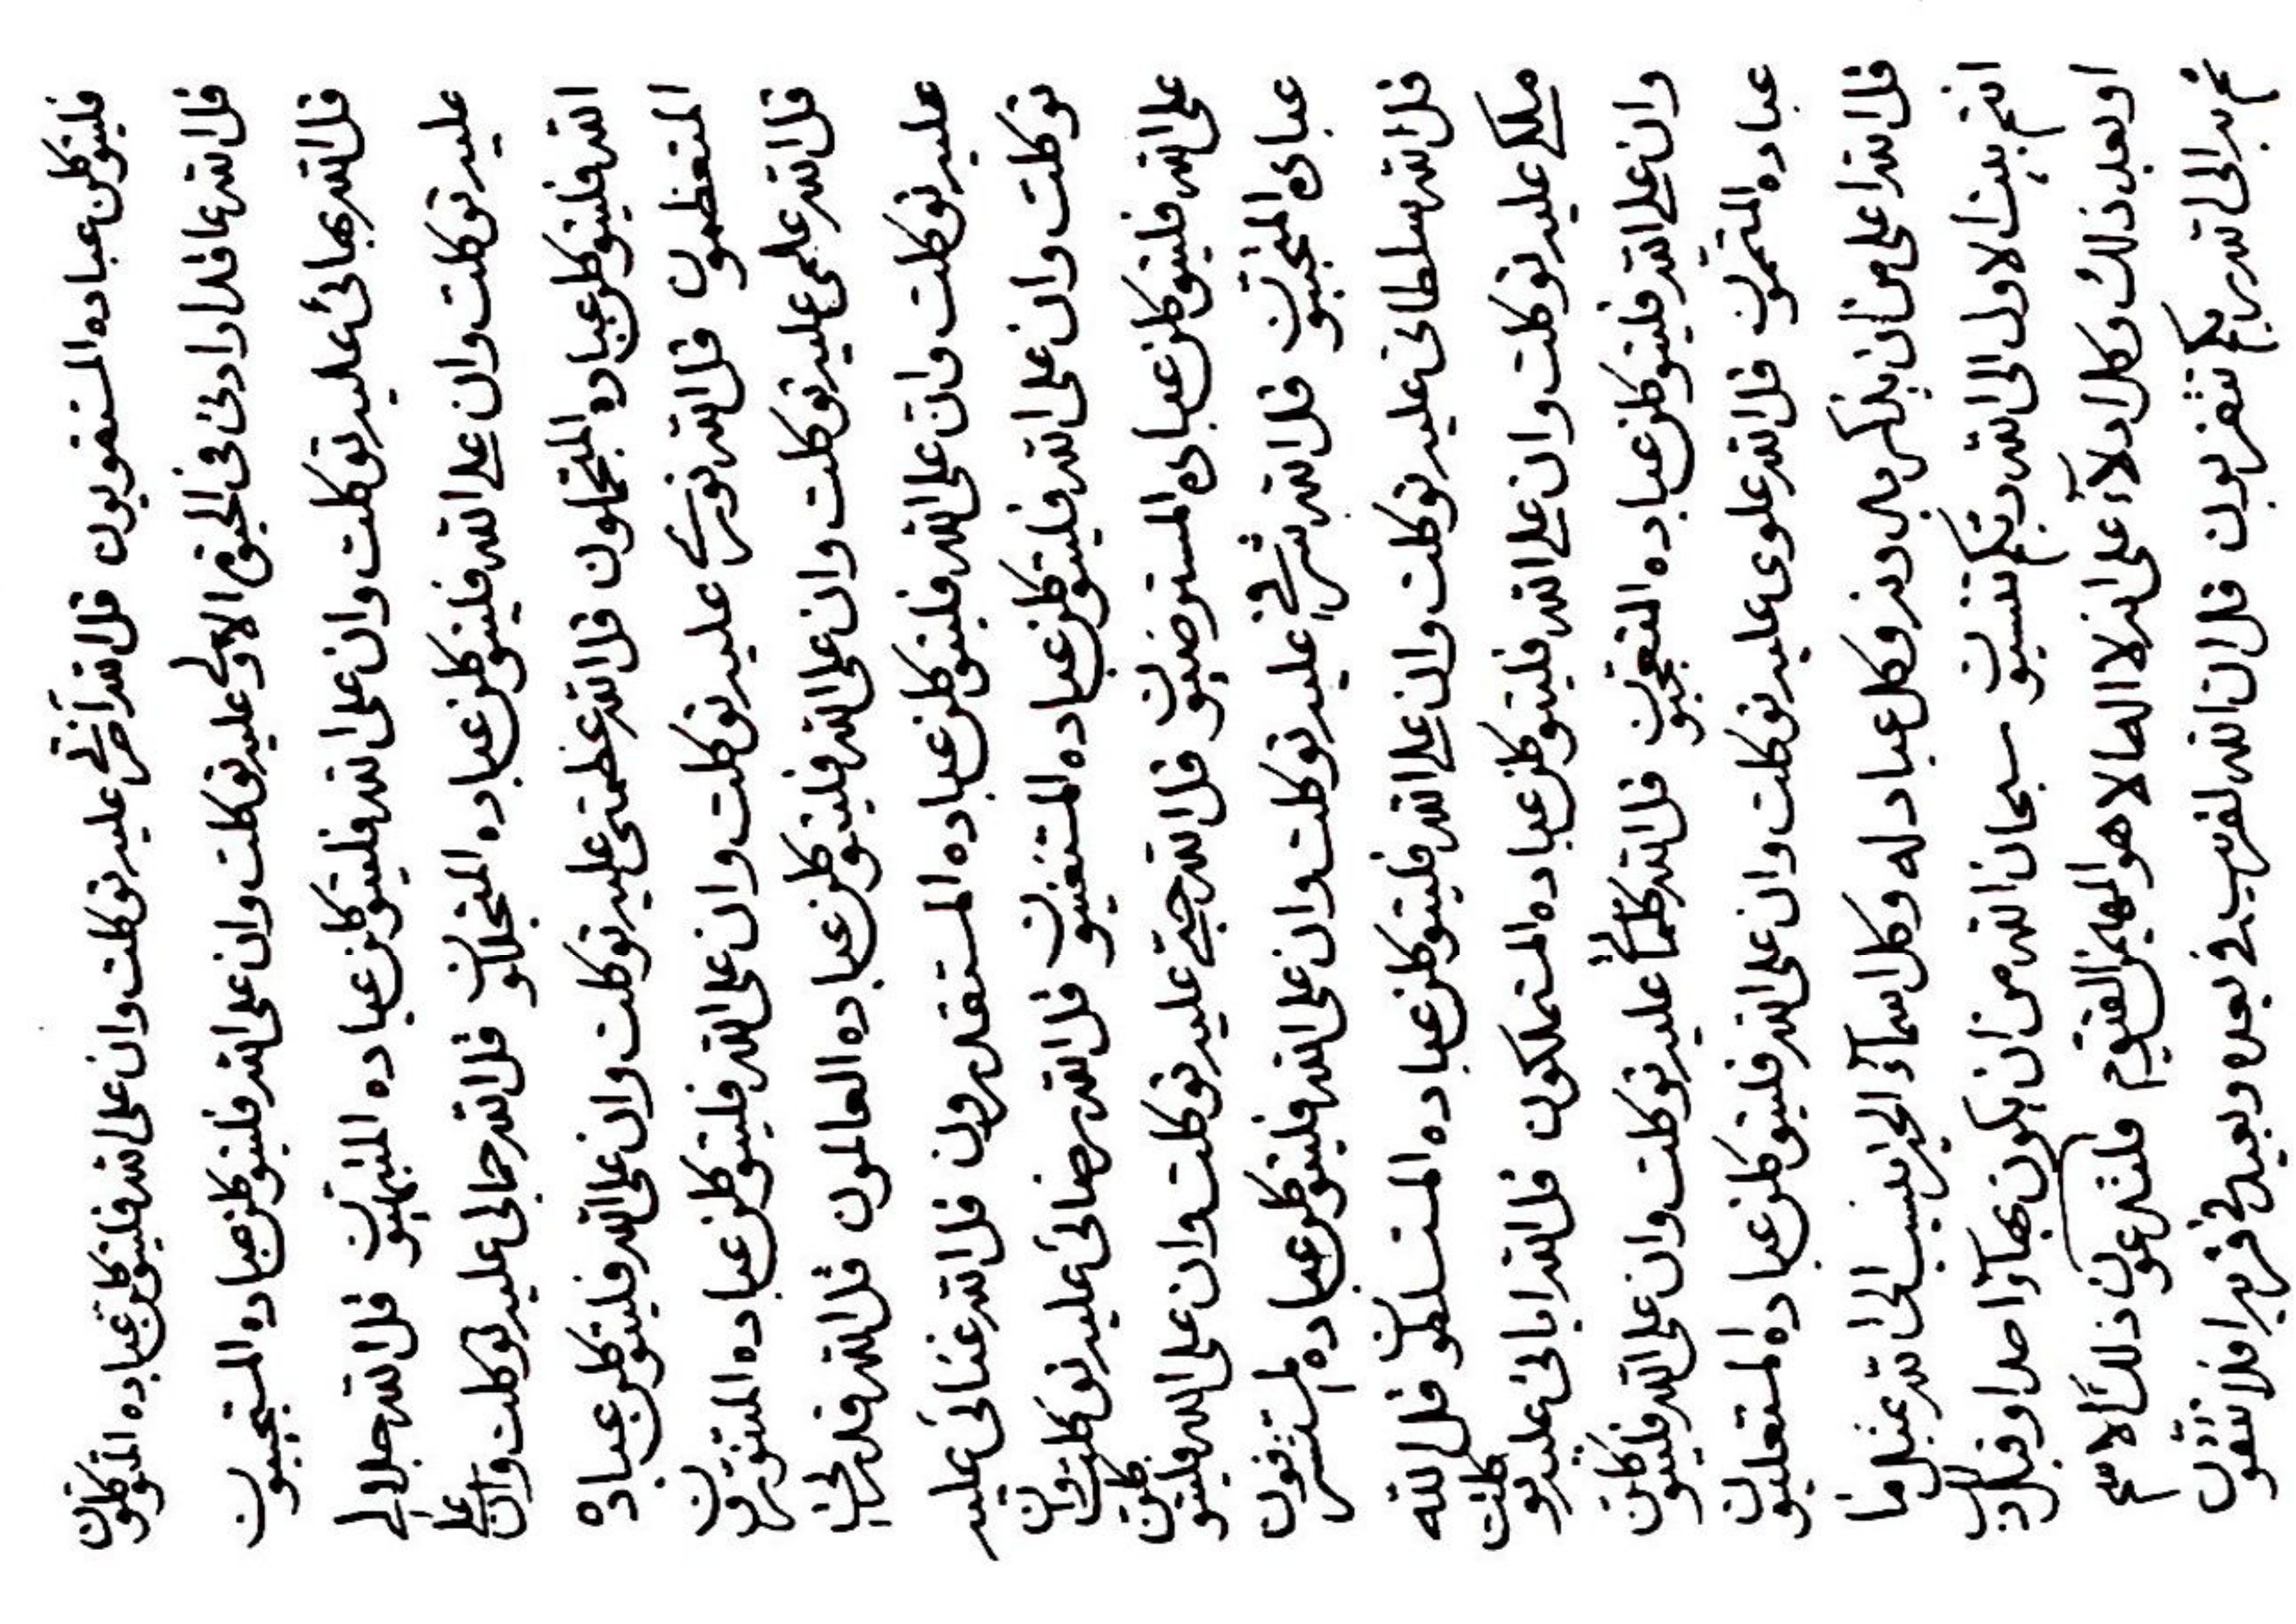 فليتوكلن عباده المستقويون قل الله آخرتي عليه توكلت وان على الله فليتوكلن عباده المتوكلون
قل الله ما قد ارادني في الحيوة الاولى عليه توكلت وان على الله فليتوكلن عباده المستحبيون
قل الله بهائي عليه توكلت وان على الله فليتوكلن عباده المتبهيون قل الله جلالي
عليه توكلت وان على الله فليتوكلن عباده المتجللون قل الله جمالي عليه توكلت وان على
الله فليتوكلن عباده المتجملون قل الله عظمتي عليه توكلت وان على الله فليتوكلن عباده
المتعظمون قل الله نوري عليه توكلت وان على الله فليتوكلن عباده المتنورون
قل الله علمي عليه توكلت وان على الله فليتوكلن عباده العالمون قل الله قدرتي
عليه توكلت وان على الله فليتوكلن عباده المستقدرون قل الله غنائي عليه
توكلت وان على الله فليتوكلن عباده المستغنيون قل الله رضائي عليه توكلت وان
على الله فليتوكلن عباده المسترضيون قل الله حبي عليه توكلت وان على الله فليتوكلن
عباده المتحبيون قل الله شرفي عليه توكلت وان على الله فليتوكلن عباده المستشرفون
قل الله سلطاني عليه توكلت وان على الله فليتوكلن عباده المتسلطون قل الله
ملكي عليه توكلت وان على الله فليتوكلن عباده المستملكون قل الله اياتي عليه توكلت
وان على الله فليتوكلن عباده المتعجبون قل الله كلماتي عليه توكلت وان على الله فليتوكلن
عباده المتتمون قل الله علوي عليه توكلت وان على الله فليتوكلن عباده المستعليون
قل الله اعلى من ان يذكر به دونه وكل عباد له وكل اسماء الخير ينسب الى الله بمثل ما
انتم بيت الاول الى الله ربكم تنسبون سبحان الله من ان يكون بهاؤا صدا وقبل ذلك
او بعد ذلك وكل ادلاء على انه لا اله الا هو المهيمن القيوم فلتدعون ذلك الاسم
ثم به الى الله ربكم تتقربون قل ان الله لقريب في بعده وبعيد في قربه افلا تتقون